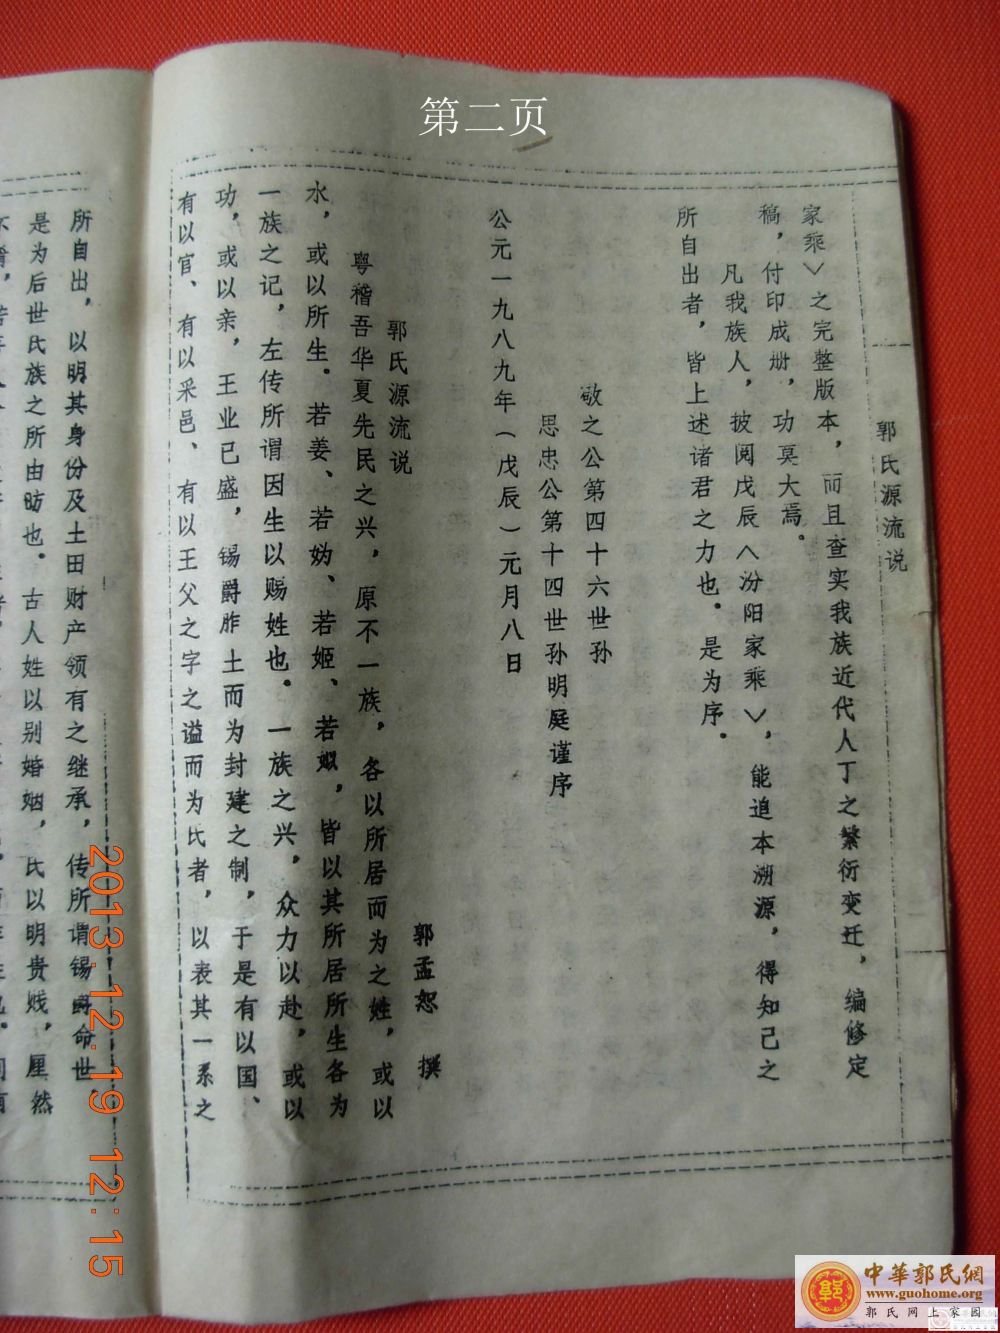 第二页
郭氏源流说
家乘＞之完整版本，而且查实我族近代人丁之繁衍变迁，编修定
稿，付印成册，功莫大焉。
凡我族人，披阅戊辰＜汾阳家乘＞，能追本溯源，得知己之
所自出者，皆上述诸君之力也。是为序．
敬之公第四十六世孙
思忠公第十四世孙明庭谨序
公元一九八九年（戊辰）元月八日
郭孟恕 撰
郭氏源流说
粤稽吾华夏先民之兴，原不一族，各以所居而为之姓，或以
水，或以所生．若姜、若妫、若姬、若姒，皆以其所居所生各为
一族之记，左传所谓因生以赐姓也．一族之兴，众力以赴，或以
功，或以亲，王业已盛，锡爵胙土而为封建之制，于是有以国、
有以官、有以采邑、有以王父之字之谥而为氏者，以表其一系之
所自出，以明其身份及土田财产领有之继承，传所谓锡爵命世，
是为后世氏族之所由昉也．古人姓以别婚姻，氏以明贵贱，厘然
2013.12.19 12:15
中華郭氏網
www.guohome.org
郭氏网上家园